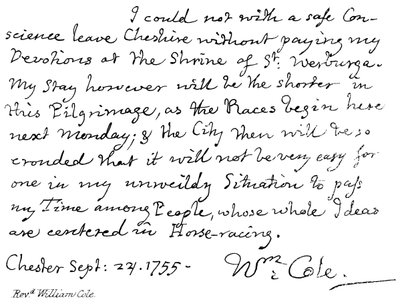 I could not with a safe Con-
science leave Cheshire without paying my
Devotions at the Shrine of St: Werburga.
My Stay however will be the shorter in
this Pilgrimage, as the Races begin here
next Monday; & the City then will be so
crouded that it will not be very easy for
one in my unweildy Situation to pass
my Time among People, whose whole Ideas
are centered in Horse-racing.
Chester Sept: 24. 1755 - Wm: Cole.
Revd. William Cole.